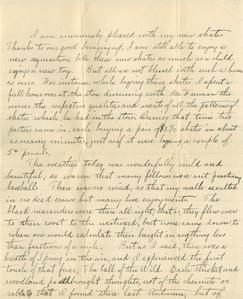 I am immensely pleased with my new skates.
Thanks to our good bringing up, I am still able to enjoy a
new acquisition like these new skates as much as a child
enjoys a new toy. But all are not blessed with such a
as ours. For instance, while buying these skates I spent a
full hour over at the store discussing with Mr.
the respective qualities and merits of all the patterns of
skates which he had in the store. During that time two
parties came in, each buying a pair of skates in about
as many minutes, just as if it were buying a couple of
5¢ pencils.
The weather today was wonderfully mild and
beautiful, so warm that many fellows were out practicing
baseball. There was no wind, so that my walk resulted
in no dead crows but many live enjoyments. The
black marauders were there all right, that is, they flew over
to their roost to the westward, but none came down to
where one would calculate their height in anything less
than fractions of a mile. But as I said, there was a
breath of spring in the air, and I experienced the first
touch of that fever, The Call of the Wild. Each thicket and
woodland path brought thoughts, not of the chestnuts or
rabbits that I found there last Autumn, but of